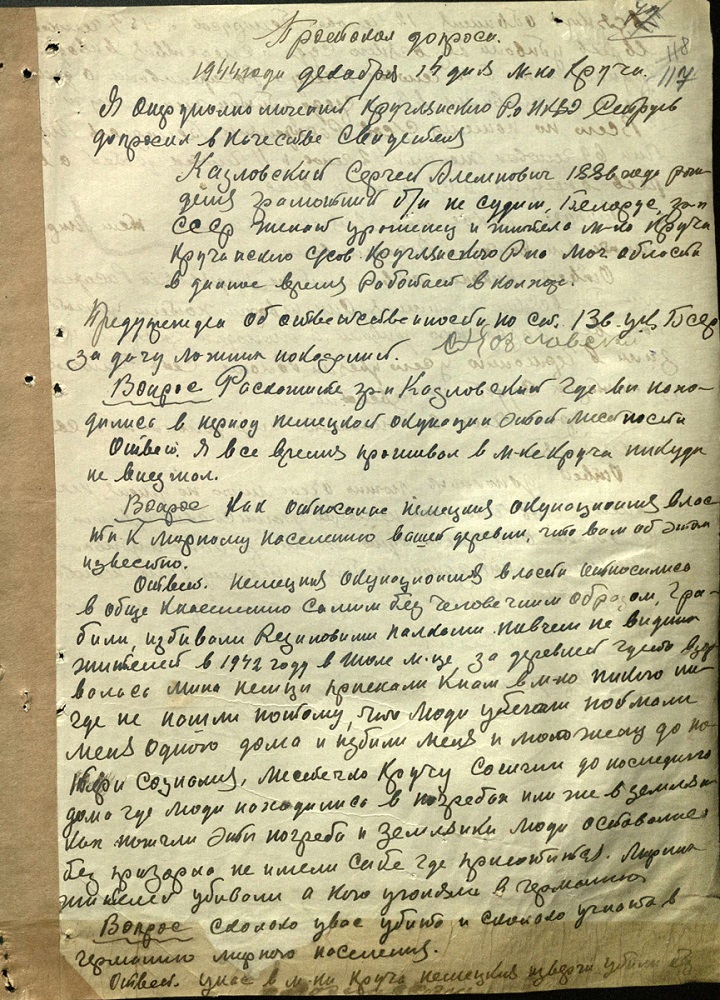 118
117
Протокол допроса.
1944 года декабря 14 дня м-ко Круча.
Я Оперуполномоченный Круглянского Р.о НКВД
допросил в качестве свидетеля
Казловский Сергей 188 года рож-
дения грамотный б/п не судим, Беларус, гр-н
СССР женат уроженец и житель м-ко Круча
Кручанского с/сов. Круглянского р-на Мог. области
в данное время работает в колхозе.
Предупрежден об ответственности по ст. 136 УК БССР
за дачу ложных показаний.
Вопрос Раскажите гр-н Казловский где вы нахо-
дились в период немецкой окупации этой местности
Ответ. Я все время проживал в м-ке Круча никуда
не выезжал.
Вопрос Как относились немецкия окупационыя влас-
ти к мирному населению вашей деревни, что вам об этом
известно.
Ответ. Немецкия окупационыя власти относились
в обще к населению самим безчеловечним образом, гра-
били, избивали резиновими палками ни в чем не винных
жителей в 1942 году в июле м-це за деревней где-то взор-
валась мина немци приехали к нам в м-ко никого ни-
где не нашли потому, что люди убежали поймали
меня одного дома и избили меня и мою жену до по-
тери сознания, местечко Кручу сожгли до последнего
дома где люди находились в погребах или же в землянках
как пожгли эти погреба и землянки люди оставались
без не имели себе где приютится. Мирных
жителей убивали а кого угоняли в германию
Вопрос сколько у вас убито и сколько угнато в
германию мирного населения.
Ответ. у нас в м-ки Круча немецкия изверги убили